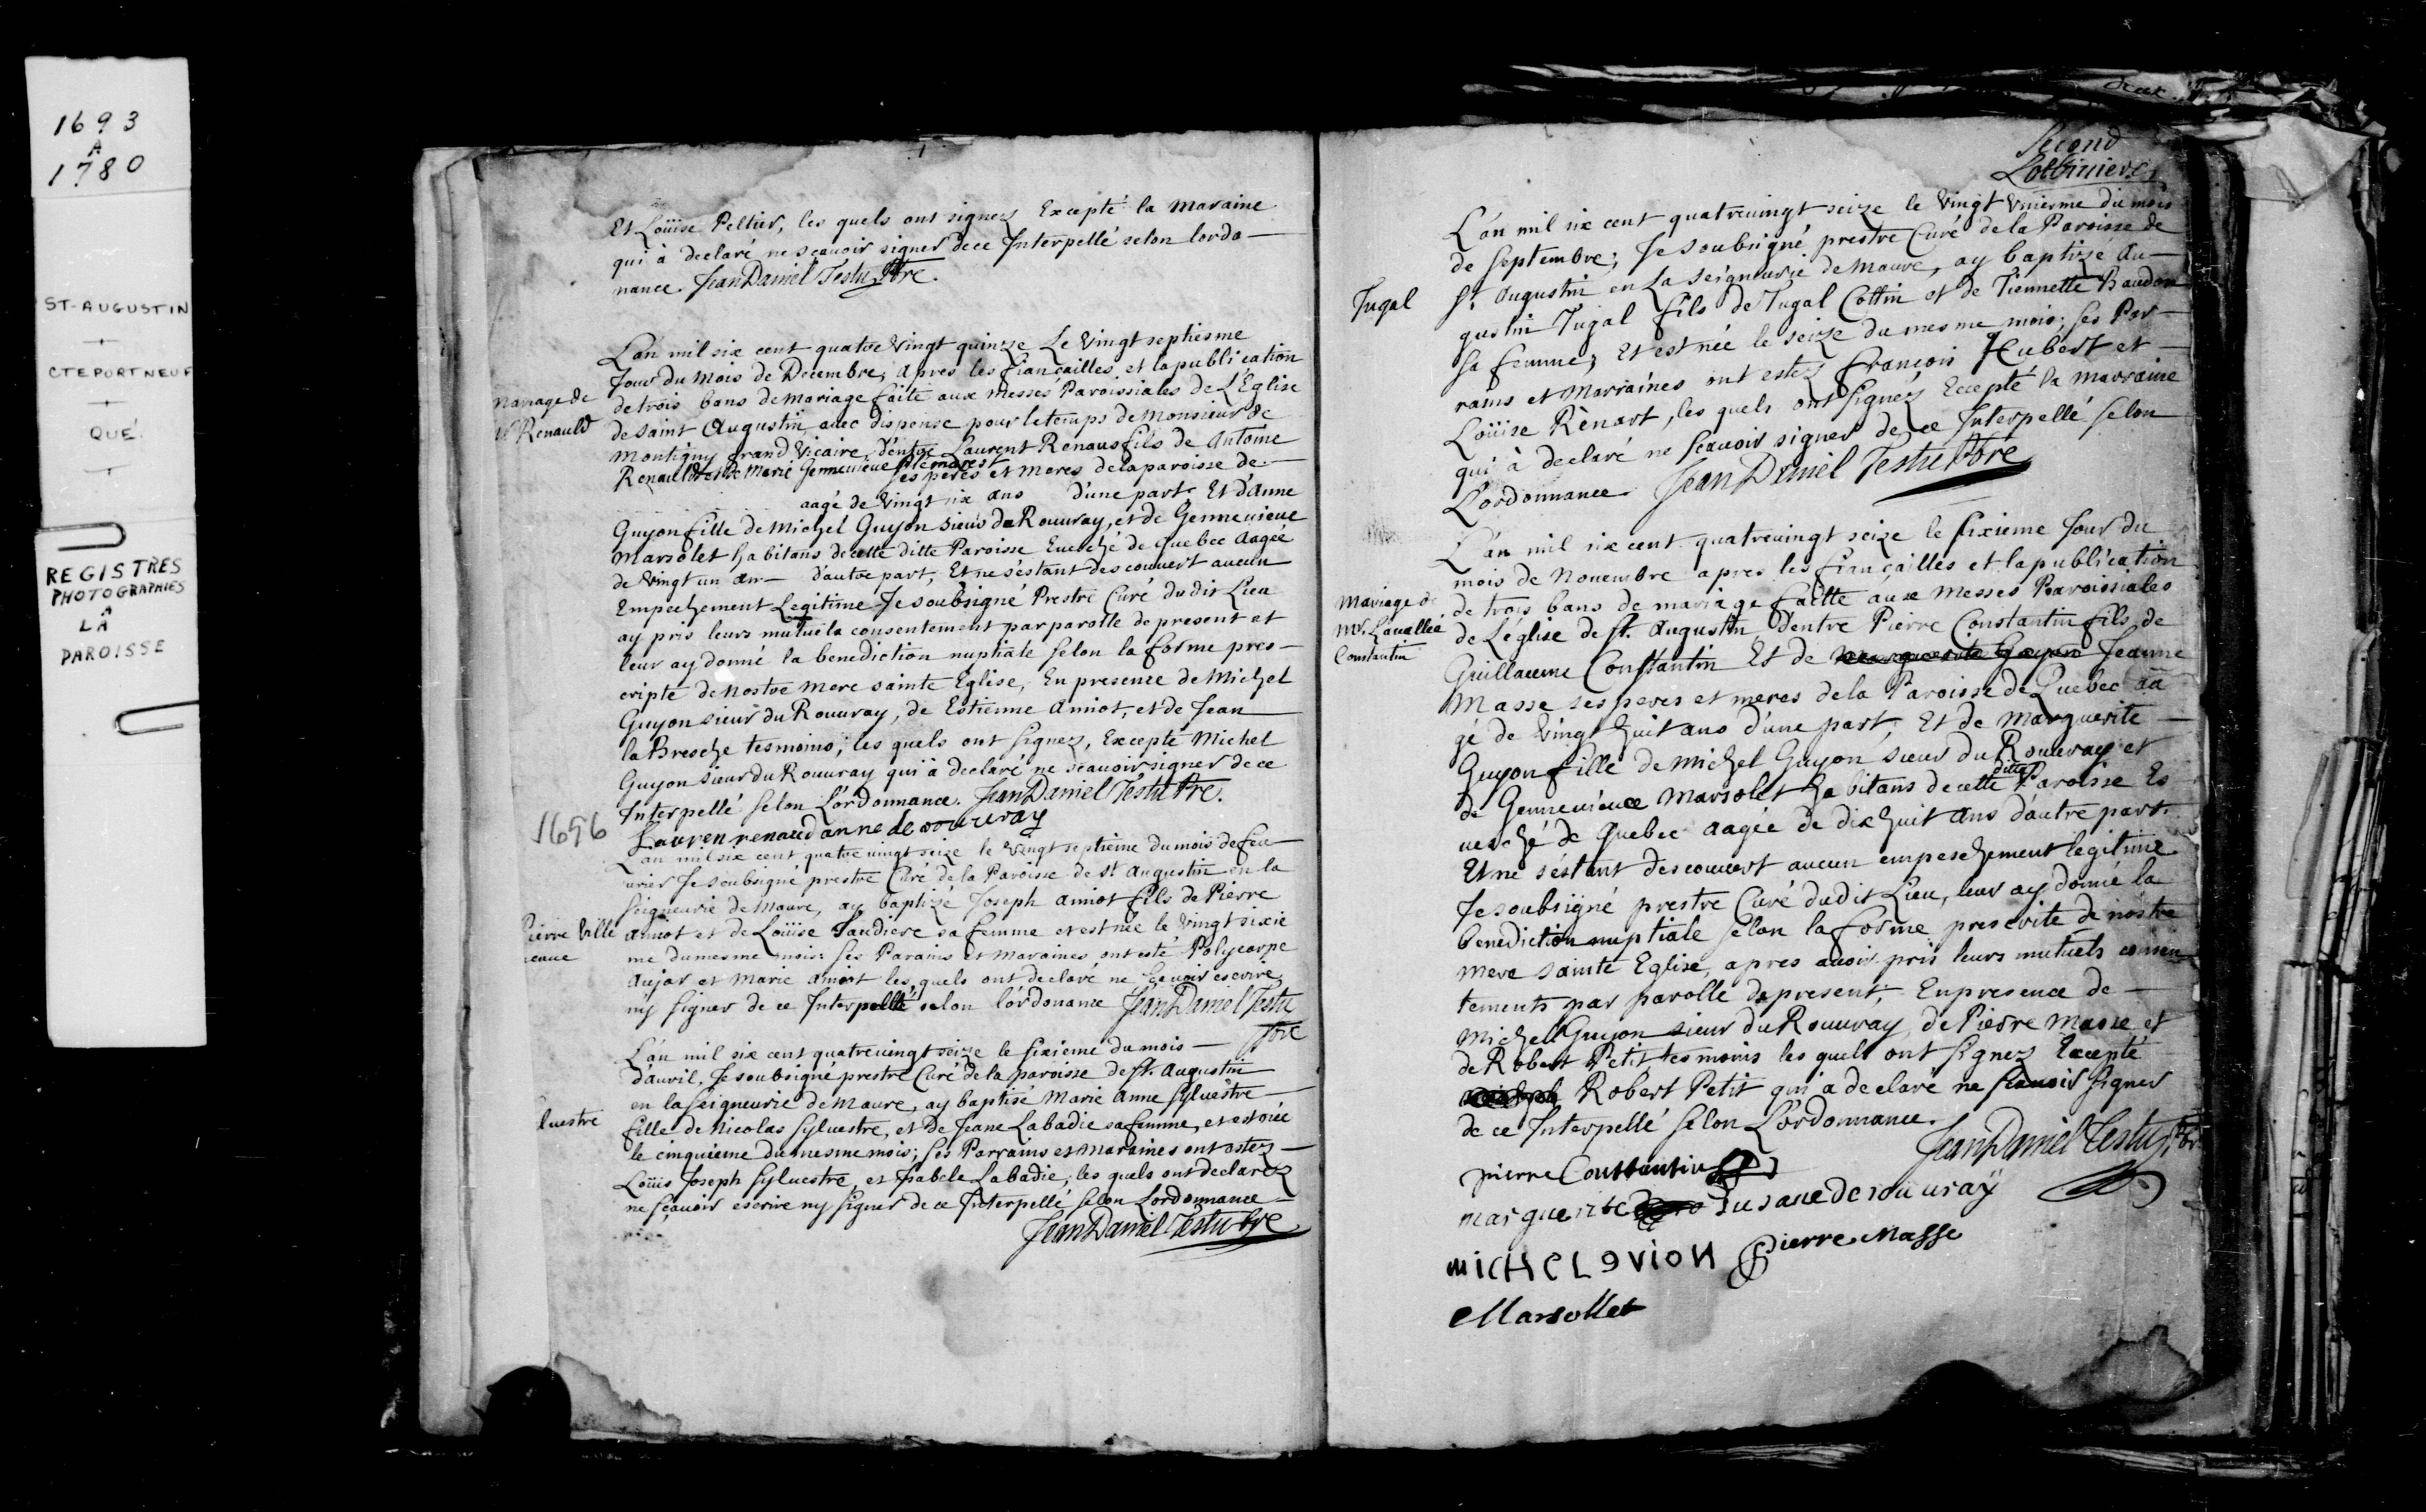 1693
A
1780
ST-AUGUSTIN
CTE PORTNEUF
QUÉ.
REGISTRES
PHOTOGRAPHIES
A
LA
PAROISSE
Et Loüise Peltier, les quels ont signez Excepté la maraine
qui à declaré ne sçavoir signer de ce Interpellé selon lordo-
nance. Jean Daniel Testu Ptre.
L'an mil six cent quatre vingt quinze Le vingt septiesme
Jour du mois de Decembre, apres les fiançailles et la publication
mariage de
de trois bans de mariage faite aux messes Paroissiales de L'Eglise
Renauld
de saint Augustin, avec dispense pour le temps de Monsieur de
Montigny grand Vicaire, d'entre Laurent Renaus fils de Antoine
Renauld et de Marie Genneuieue
ses peres et meres de la paroisse de
aagé de vingt six ans d'une part Et d'Anne
Guyon fille de Michel Guyon sieur du Rouuray, et de Genneuieue
Marsolet habitans de cette ditte Paroisse Euesché de quebec Aagée
de vingt un an d'autre part, Et ne s'estant descouuert aucun
Empechement Legitime Je soubsigné Prestre Curé du dit Lieu
ay pris leurs mutuels consentement par parolle de present et
leur ay donné la benediction nuptiale selon la forme pres-
cripte de nostre mere sainte Eglise, En presence de Michel
Guyon sieur du Rouuray, de Estienne Amiot, et de Jean
la Bresche tesmoins, les quels ont signez, Excepté Michel
Guyon sieur du Rouuray qui à declaré ne scauoir signer de ce
Interpellé selon L'ordonnance. Jean Daniel Testu Ptre.
1696
Lauren renaud anne de rouuray
L'an mil six cent quatre uingt seize le vingt septieme du mois de feu
urier Je soubsigné prestre Curé de la Paroisse de st Augustin en la
seigneurie de Maure, ay baptizé Joseph Amiot fils de Pierre
Pierre Ville
Amiot et de Loüise Taudiere sa femme et est née le vingt sixie
neuue
me du mesme mois: ses Parains et Maraines ont esté Polycarpe
Aujar et Marie Amiot les quels ont declaré ne scauoir escrire
ny signer de ce Interpellé selon l'ordonance Jean Daniel Testu
Ptre
L'an mil six cent quatre uingt seize le sixieme du mois
d'auril. Je soubsigné prestre Curé de la paroisse de St. Augustin
en la seigneurie de Maure, ay baptisé Marie Anne Syluestre
luestre
fille de Nicolas Syluestre, et de Jeane Labadie sa femme, et est née
le cinquieme du mesme mois; ses Parrains et Maraines ont estez
Loüis Joseph Syluestre, et Isabele Labadie, les quels ont declarez
ne sçauoir escrire ny signer de ce Interpellé selon Lordonnance
Jean Daniel Testu Ptre
Second
Lotbiniere
L'an mil six cent quatreuingt seize le vingt vniesme du mois
de septembre; Je soubsigné prestre Curé de la Paroisse de
St. Augustin en La seigneurie de Maure, ay baptizé Au-
Tugal
gustin Tugal fils de Tugal Cottin et de Tiennette Baudon
sa femme; Et est née le seize du mesme mois; ses Par-
rains et Marraines ont estez François Hubert et
Loüise Renart, les quels ont signez Excepté la marraine
qui à declaré ne scauoir signer de ce Interpellé selon
L'ordonnance Jean Daniel Testu Ptre
L'an mil six cent quatreuingt seize le sixieme Jour du
mois de Nouembre apres les fiançailles et la publication
Mariage de
de trois bans de mariage faitte aux Messes Paroissiales
Mr. Lauallée
de L'église de St. Augustin, D'entre Pierre Constantin fils de
Constantin
Guillaume Constantin Et de Jeanne
Masse ses peres et meres de la Paroisse de Quebec aa
gé de vingt huit ans d'une part, Et de Marguerite
Guyon fille de Michel Guyon sieur du Rouuray et
de Genneuieue Marsolet habitans de cette ditte Paroisse Es
uesché de Quebec aagée de dix huit ans d'autre part.
Et ne s'éstant descouuert aucun empeschement legitime
Je soubsigné prestre Curé du dit Lieu, leur ay donné la
benediction nuptiale selon la forme prescrite de nostre
mere sainte Eglise, apres auoir pris leurs mutuels consen
tements par parolle de present, En presence de
Michel Guyon sieur du Rouuray, de Pierre Masse et
de Robert Petit tesmoins les quels ont signez Excepté
Robert Petit qui a declaré ne scauoir signer
de ce Interpellé selon L'ordonnance.
Jean Daniel Testu Ptre
pierre Constantin
marguerite Susane de rouuray
MICHEL GVION Pierre Masse
Marsollet